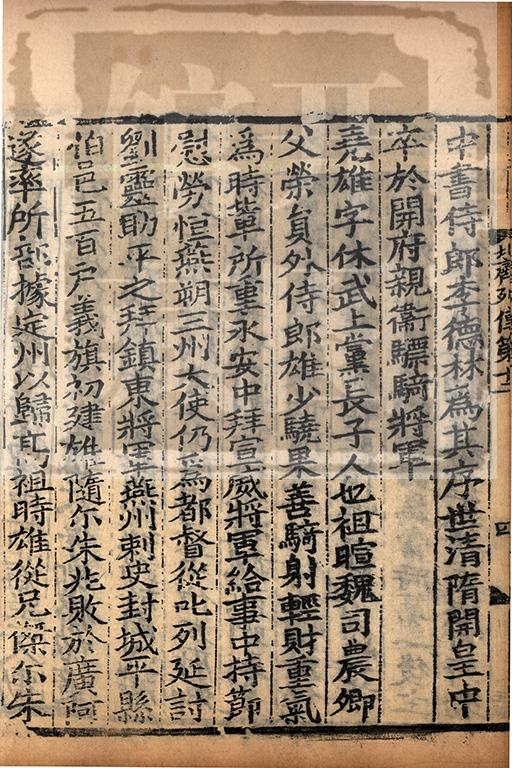 中書侍郎李德林爲其序世清隋開皇中
卒於開府親衛驃騎將軍
堯雄字休武上黨長子人也祖暄魏司農卿
父榮員外侍郎雄少驍果善騎射輕財重氣
爲時軰所重永安中拜宣威將軍給事中持節
慰勞恒燕朔三州大使仍爲都督從叱列延討
劉靈助平之拜鎮東將軍燕州刺史封城平縣
伯邑五百戶義旗初建雄隨尒朱兆敗於廣阿
遂率所部據定州以歸高祖時雄從兄傑尒朱
北齊列傳第十二
四